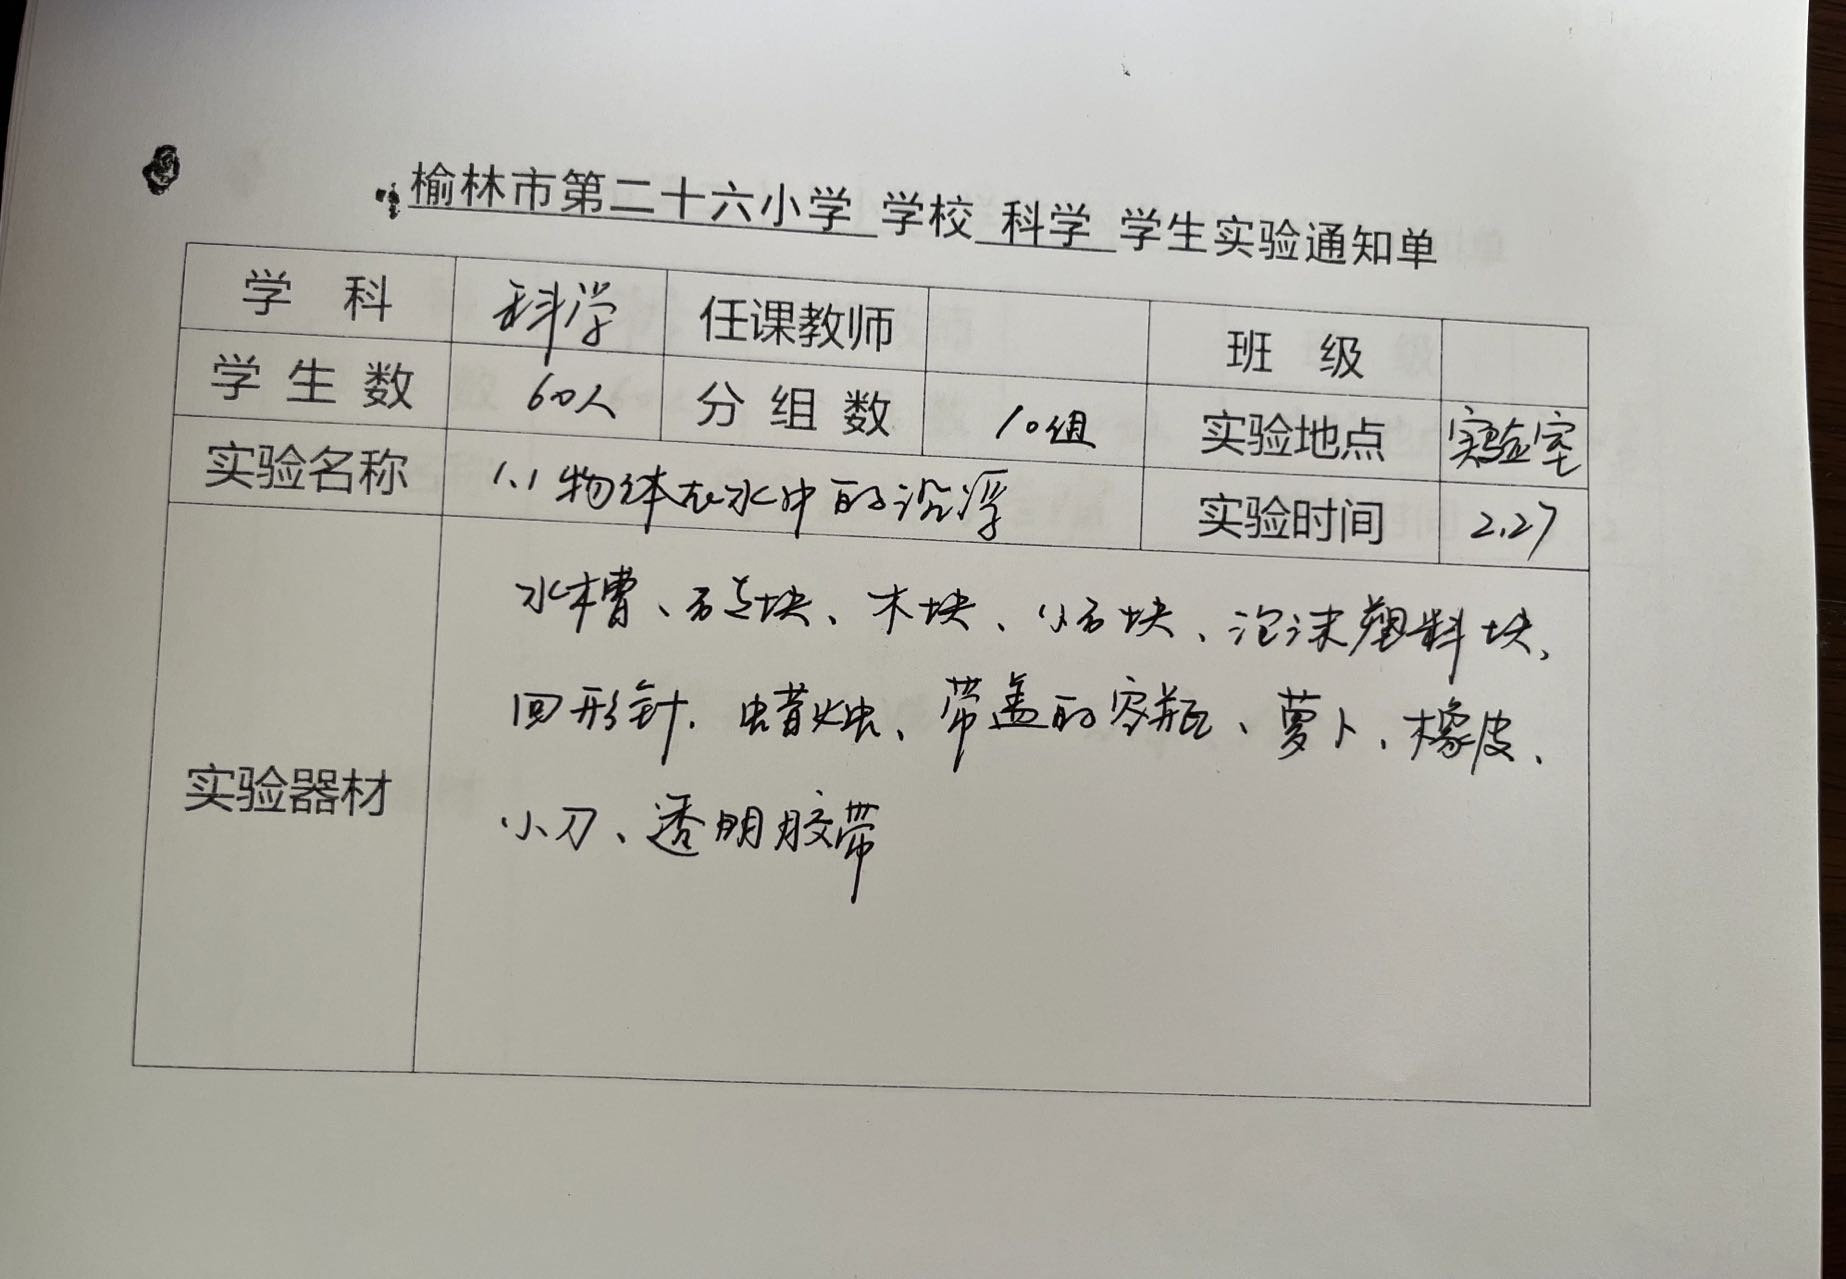 榆林市第二十六小学 学校 科学 学生实验通知单
学 科 科学 任课教师 班 级
学 生 数 60人 分 组 数 10组 实验地点 实验室
实验名称 1.1 物体在水中的沉浮 实验时间 2.27
实验器材
水槽、砖块、木块、小石块、泡沫塑料块、
回形针、蜡烛、带盖的空瓶、萝卜、橡皮、
小刀、透明胶带